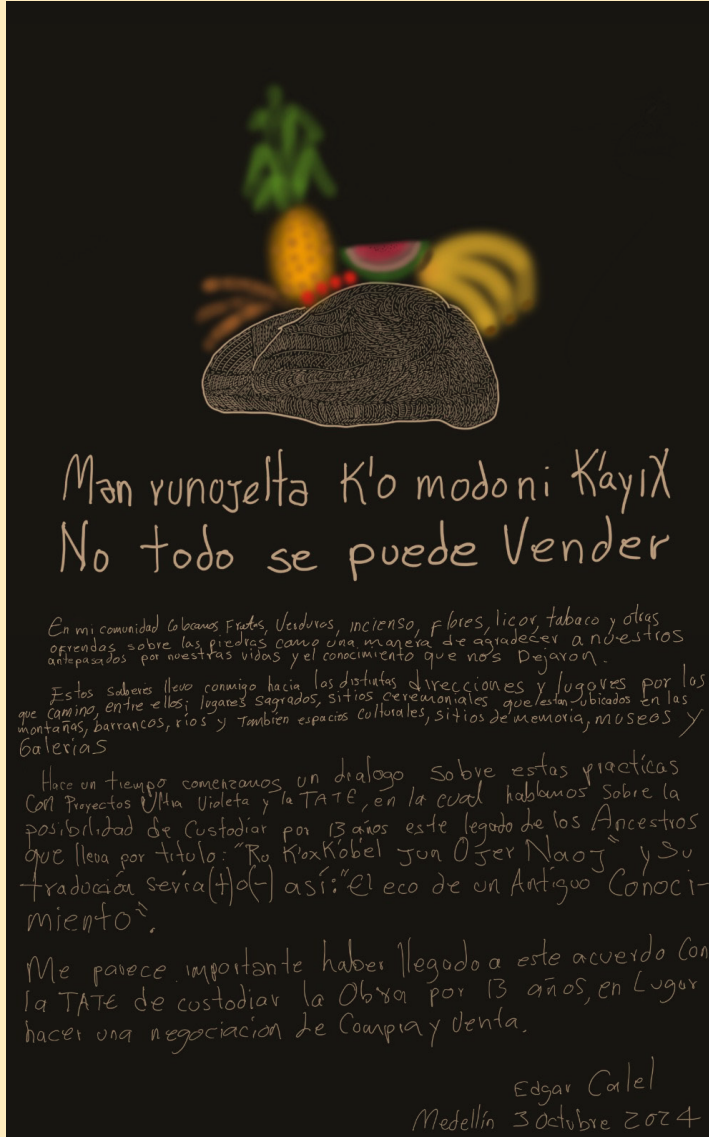 Man runojelta K'o modoni K'ayiX
No todo se puede Vender
En mi comunidad Colocamos Frutas, Verduras, incienso, Flores, licor, tabaco y otras
ofrendas sobre las piedras como una manera de agradecer a nuestros
antepasados por nuestras vidas y el conocimiento que nos Dejaron.
Estos saberes llevo conmigo hacia las distintas direcciones y lugares por los
que camino, entre ellos; lugares sagrados, sitios ceremoniales que estan ubicados en las
montañas, barrancos, rios y También espacios Culturales, sitios de memoria, museos y
Galerias
Hace un tiempo comenzamos un dialogo sobre estas practicas
Con Proyectos Ultra Violeta y la TATE, en la cual hablamos sobre la
posibilidad de Custodiar por 13 años este legado de los Ancestros
que lleva por titulo: "Ru K'oxK'obel Jun Ojer Naoj" y Su
traducción seria (+) o (-) así: "El eco de un Antiguo Conoci-
miento".
Me parece importante haber llegado a este acuerdo Con
la TATE de custodiar la Obra por 13 años, en Lugar
hacer una negociacion de Compra y Venta.
Edgar Calel
Medellín 3 Octubre 2024